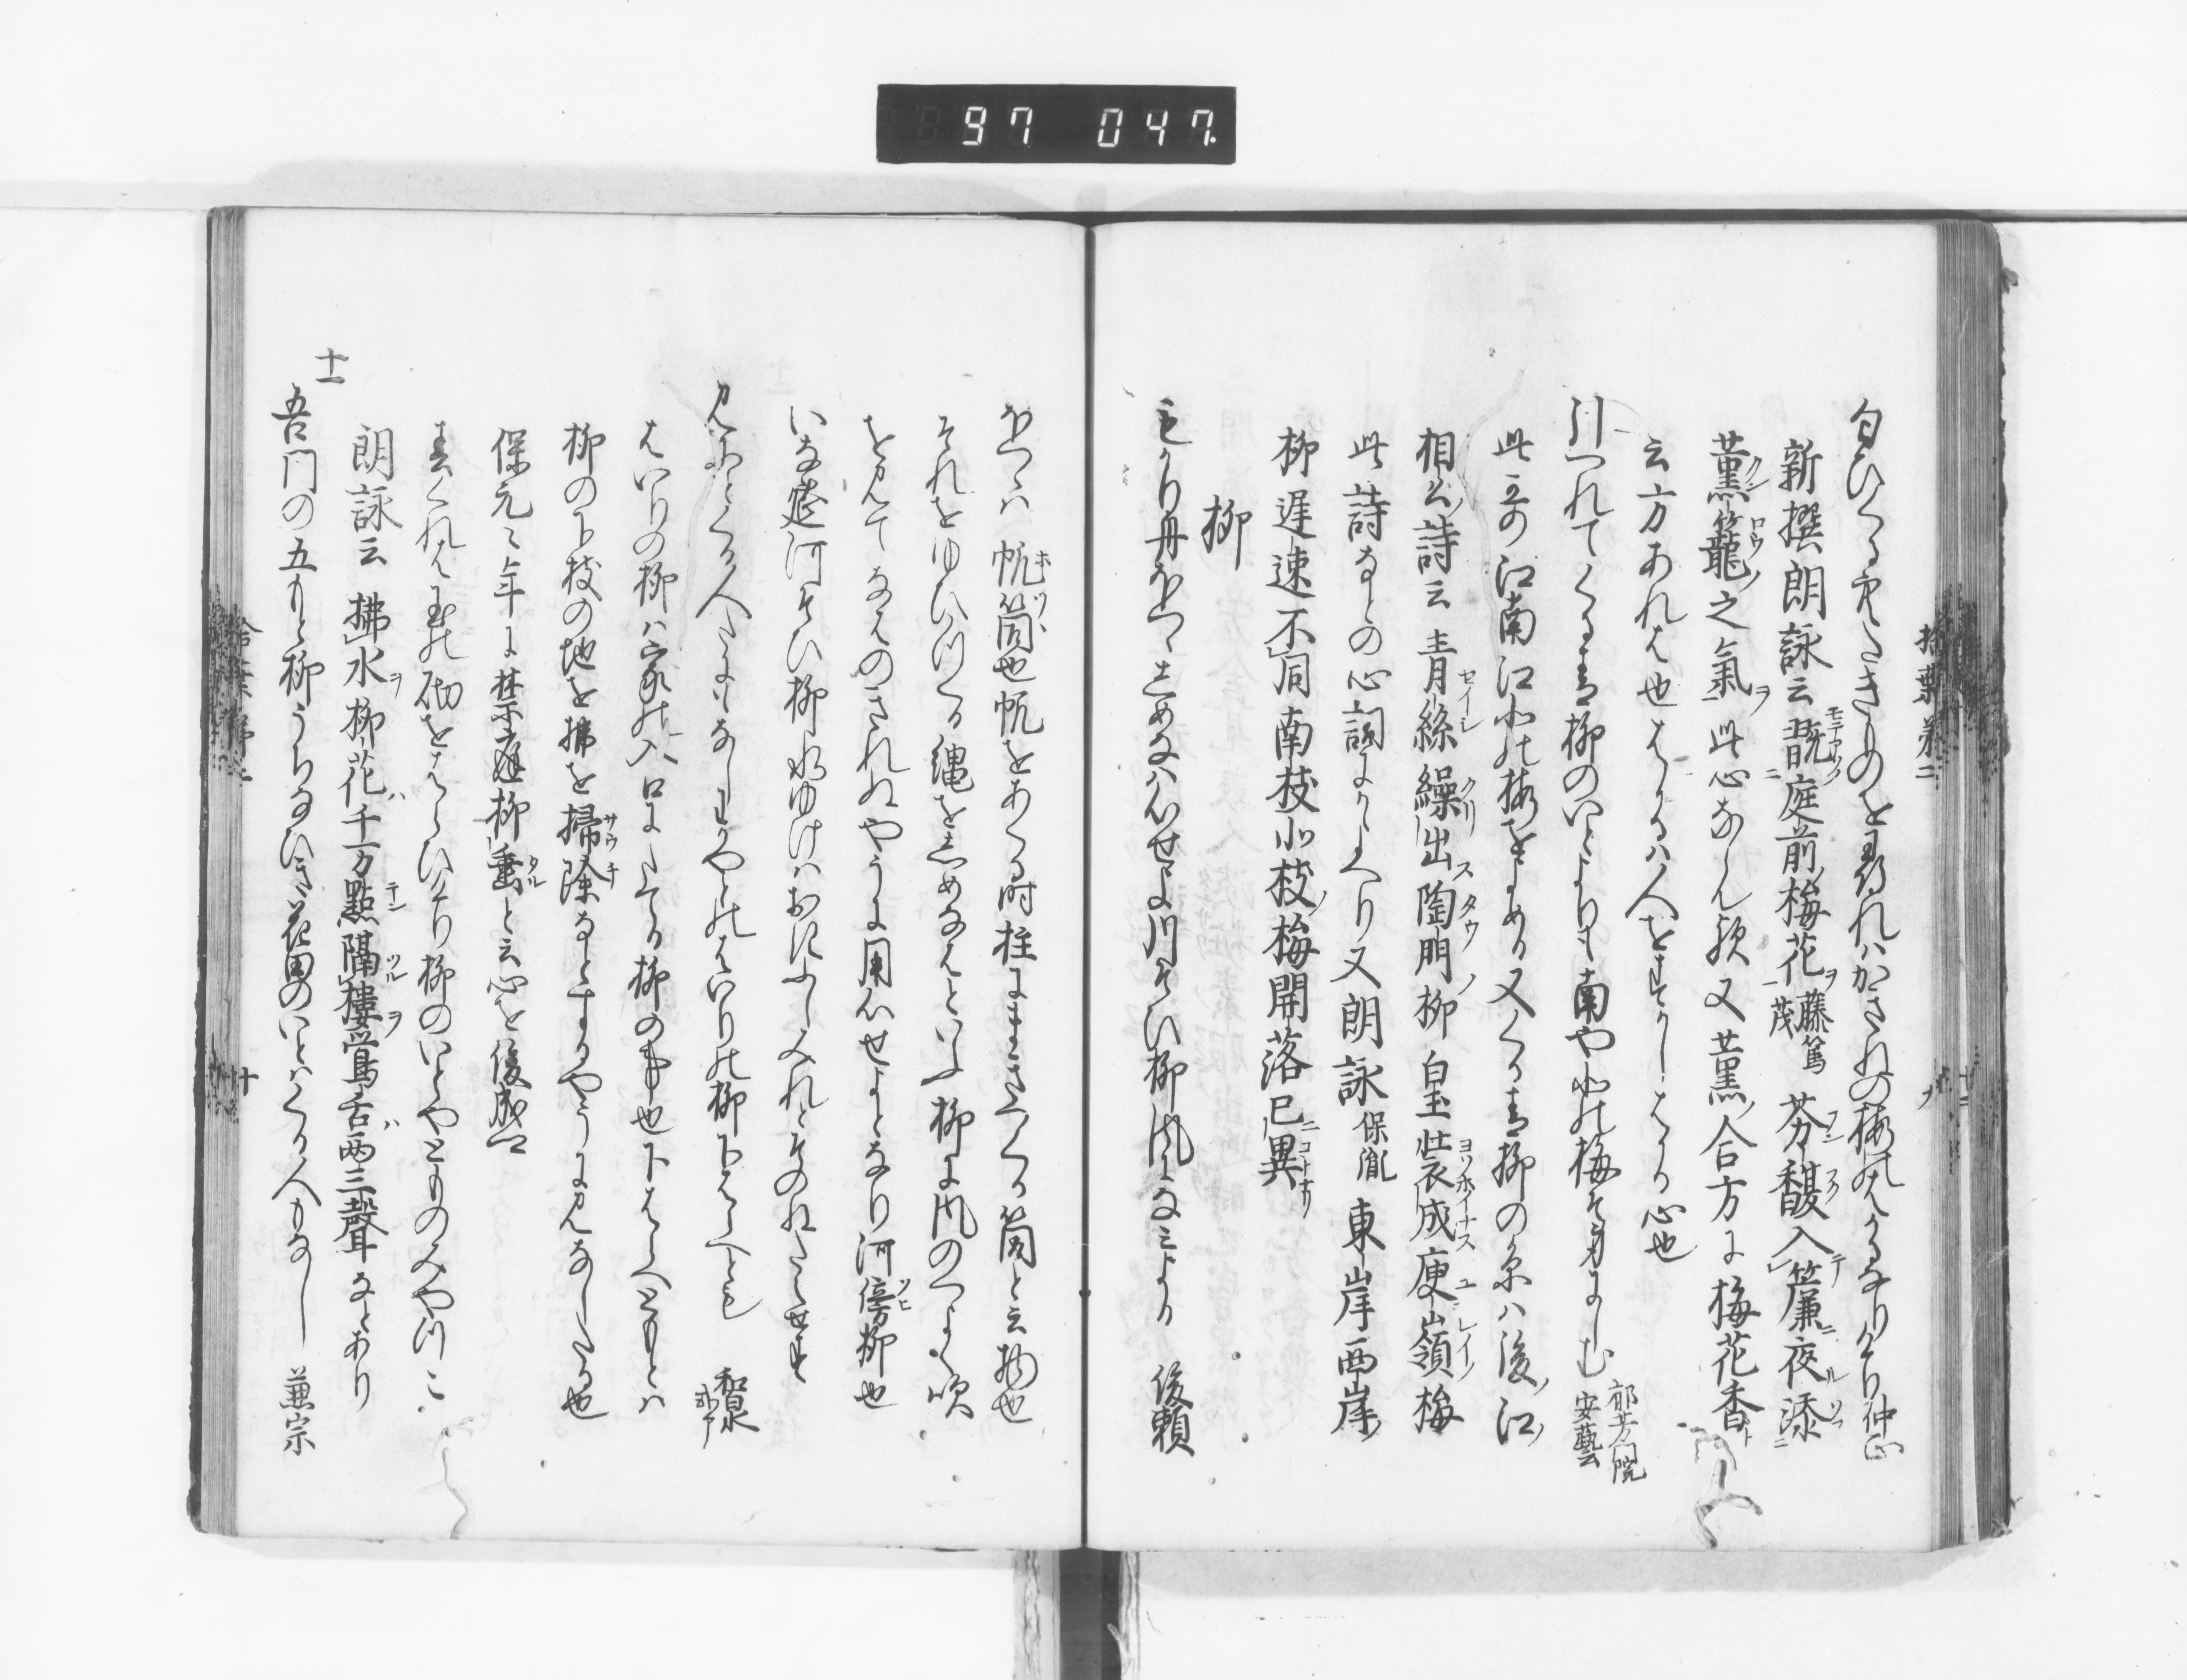 97 047.
拾葉第二
匂ひくるたきものを尋れはかさねの梅のなりけり 仲正
新撰朗詠云 翫庭前梅花 藤篤茂 芬馥入簾夜添
薫籠之氣 此心なるへし歟 又薫合方に梅花香と
云方あれは也 はかるハ人をすかしはかる心也
引つれてくる青柳のいとよりも南や北の梅そ身にしむ 郁芳門院安藝
此哥 江南江北の梅をよめり 又くる青柳の糸ハ後江
相公詩云 青絲繰出陶門柳 白玉裝成庾嶺梅
此詩なとの心詞によくかへり 又朗詠 保胤 東岸西岸
柳遅速不同 南枝北枝梅開落已異
柳
もかり舟ほつゝしめなハ心せよ川そひ柳風になみよる 俊頼
ほつゝハ 帆筒也 帆をあくる時柱にまきつくる筒と云物也
それをゆひつくる縄をしめなはといふ 柳に風のつよく吹
を見て なはのきれぬやうに用心せよとなり 河傍柳也
いな莚河そひ柳水ゆけはおきふしみれとそのねたえせす
見にとくる人たにもなしわかやとのはいりの柳下はらへとも 和泉式ア
はいりの柳ハ家の入口にたてる柳の事也 下はらへともとハ
柳の下枝の地を拂を掃除なとするやうに見なしたる也
保元々年に禁庭柳垂と云心を 俊成卿
春くれは玉の砌をはらひけり柳のいとやとものみやつこ
朗詠云 拂水柳花千万點 隔樓鶯舌兩三聲 なとあり
吾門の五もと柳うちなひき花田のいとハくる人もなし 兼宗
十一
十